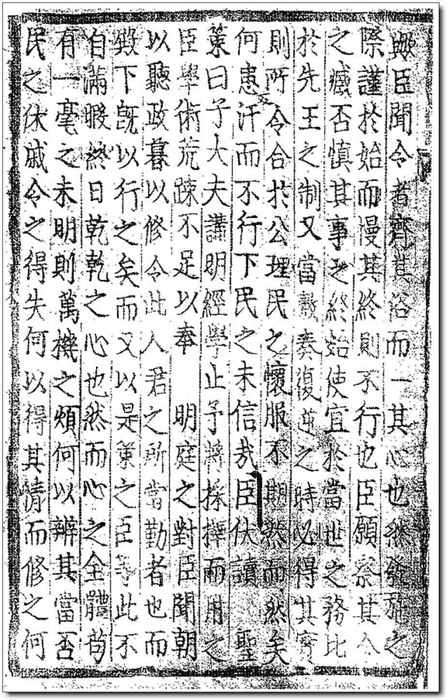 歟臣聞令者齊其俗而一其心也然發施之
際謹於始而慢其終則不行也臣願察其人
之臧否慎其事之終始使宜於當世之務比
於先王之制又當敷奏復逆之時必得其實
則所令合於公理民之懷服不期然而然矣
何患汗而不行下民之未信哉臣伏讀 聖
策曰子大夫講明經學止予將採擇而用之
臣學術荒踈不足以奉 明庭之對臣聞朝
以聽政暮以修令此人君之所當勤者也而
殿下旣以行之矣而又以是策之臣等此不
自滿暇終日乾乾之心也然而心之全體苟
有一毫之未明則萬機之煩何以辨其當否
民之休戚令之得失何以得其情而修之何